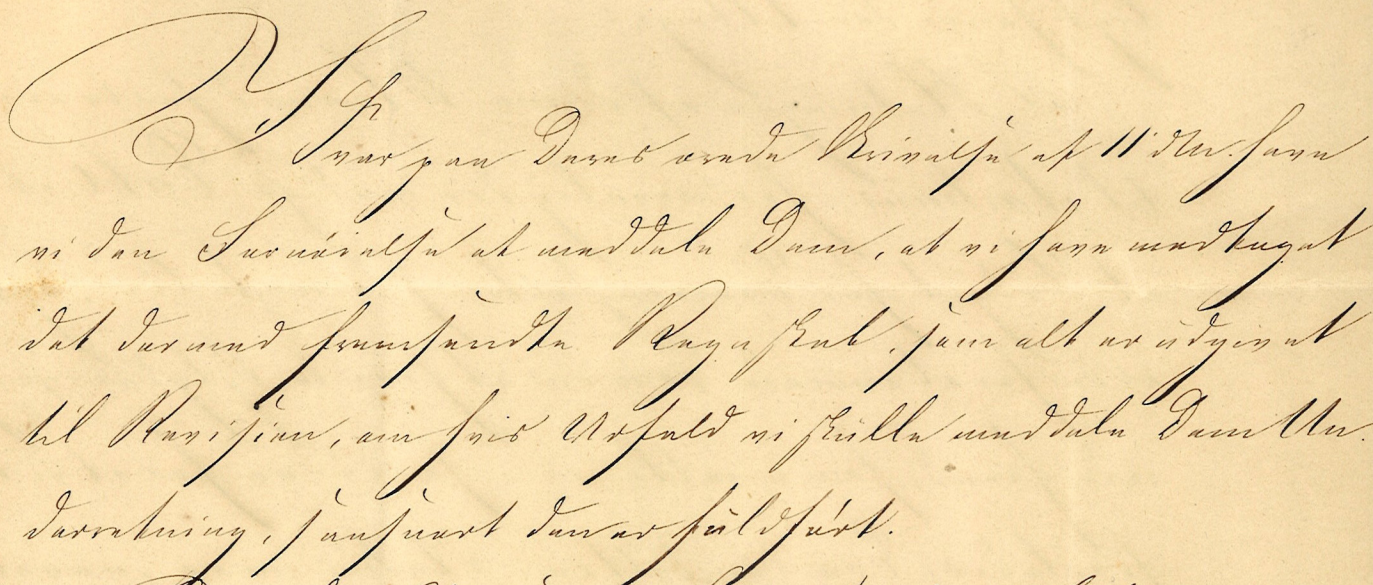 I Svar paa Deres ærede Skrivelse af 11 ds. have
vi den Fornøielse at meddele Dem, at vi have modtaget
det dermed fremsendte Regnskab, som alt er udgivet
til Revision, om hvis Udfald vi skulle meddele Dem Un-
derretning, saasnart den er fuldført.